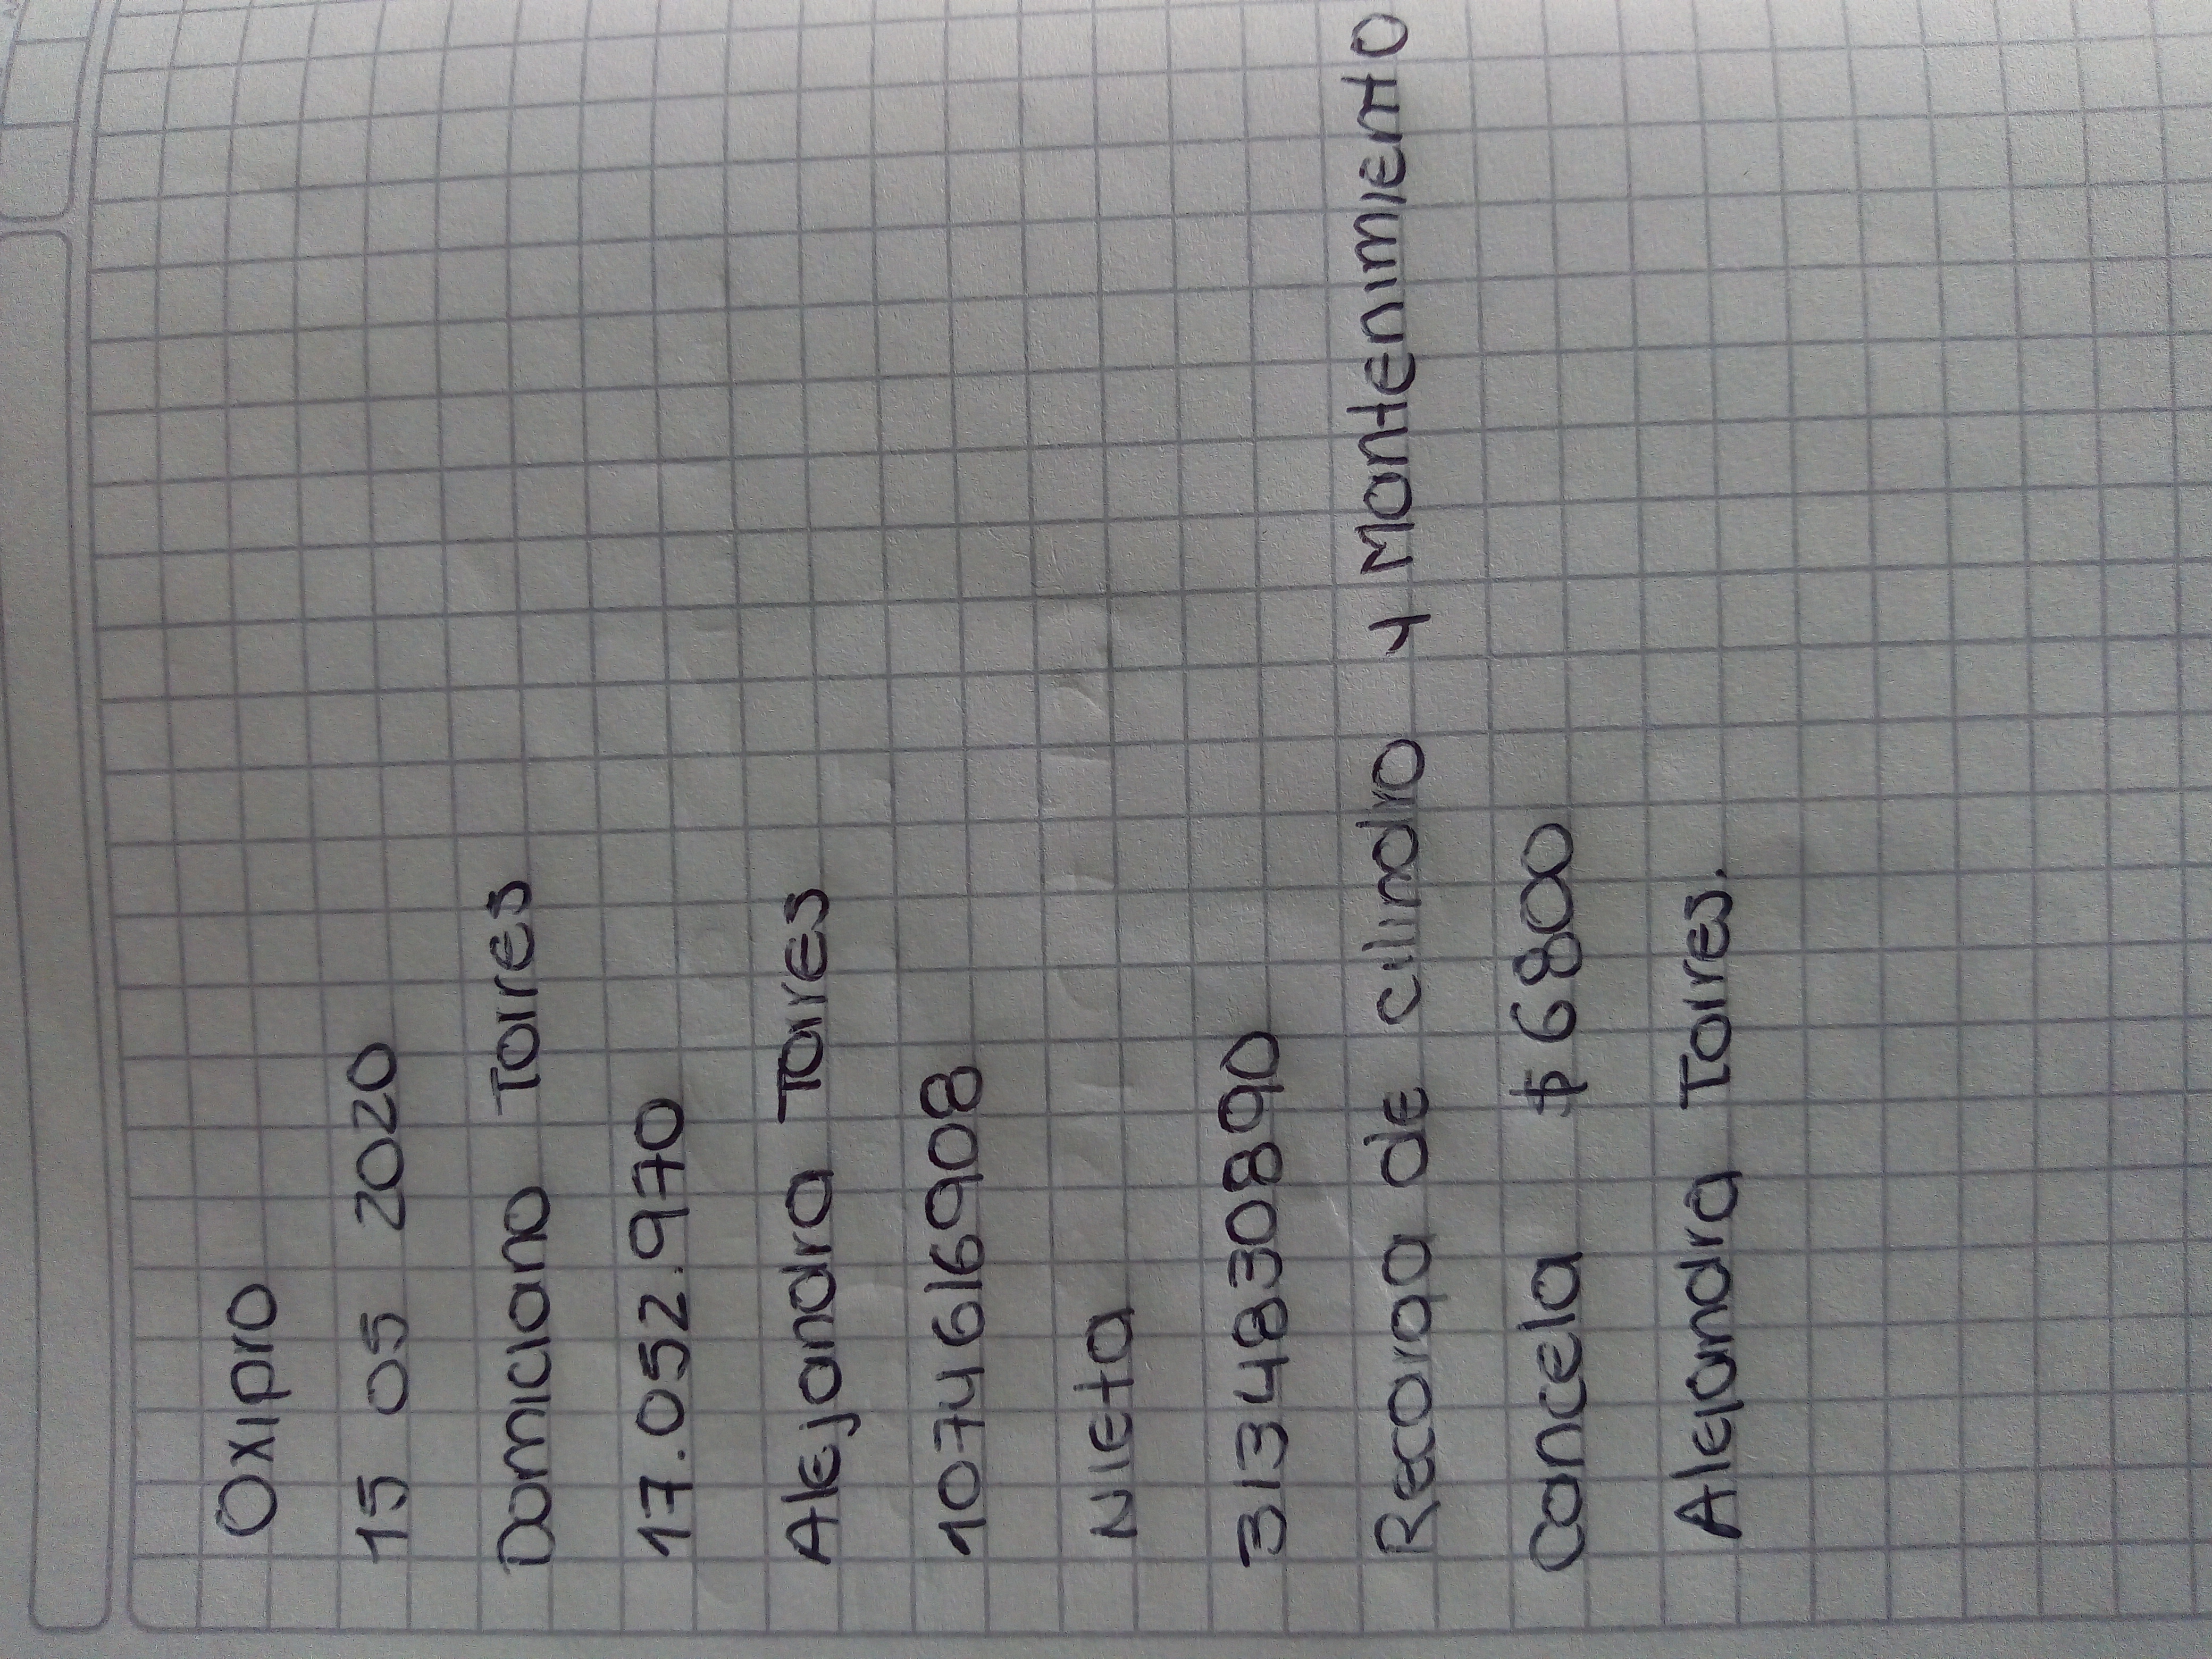 Oxipro
15 05 2020
Domiciano Torres
17.052.970
Alejandra Torres
1074616908
Nieta
3134830890
Recarga de cilindro y Mantenimiento
Cancela $ 6800
Alejandra Torres.